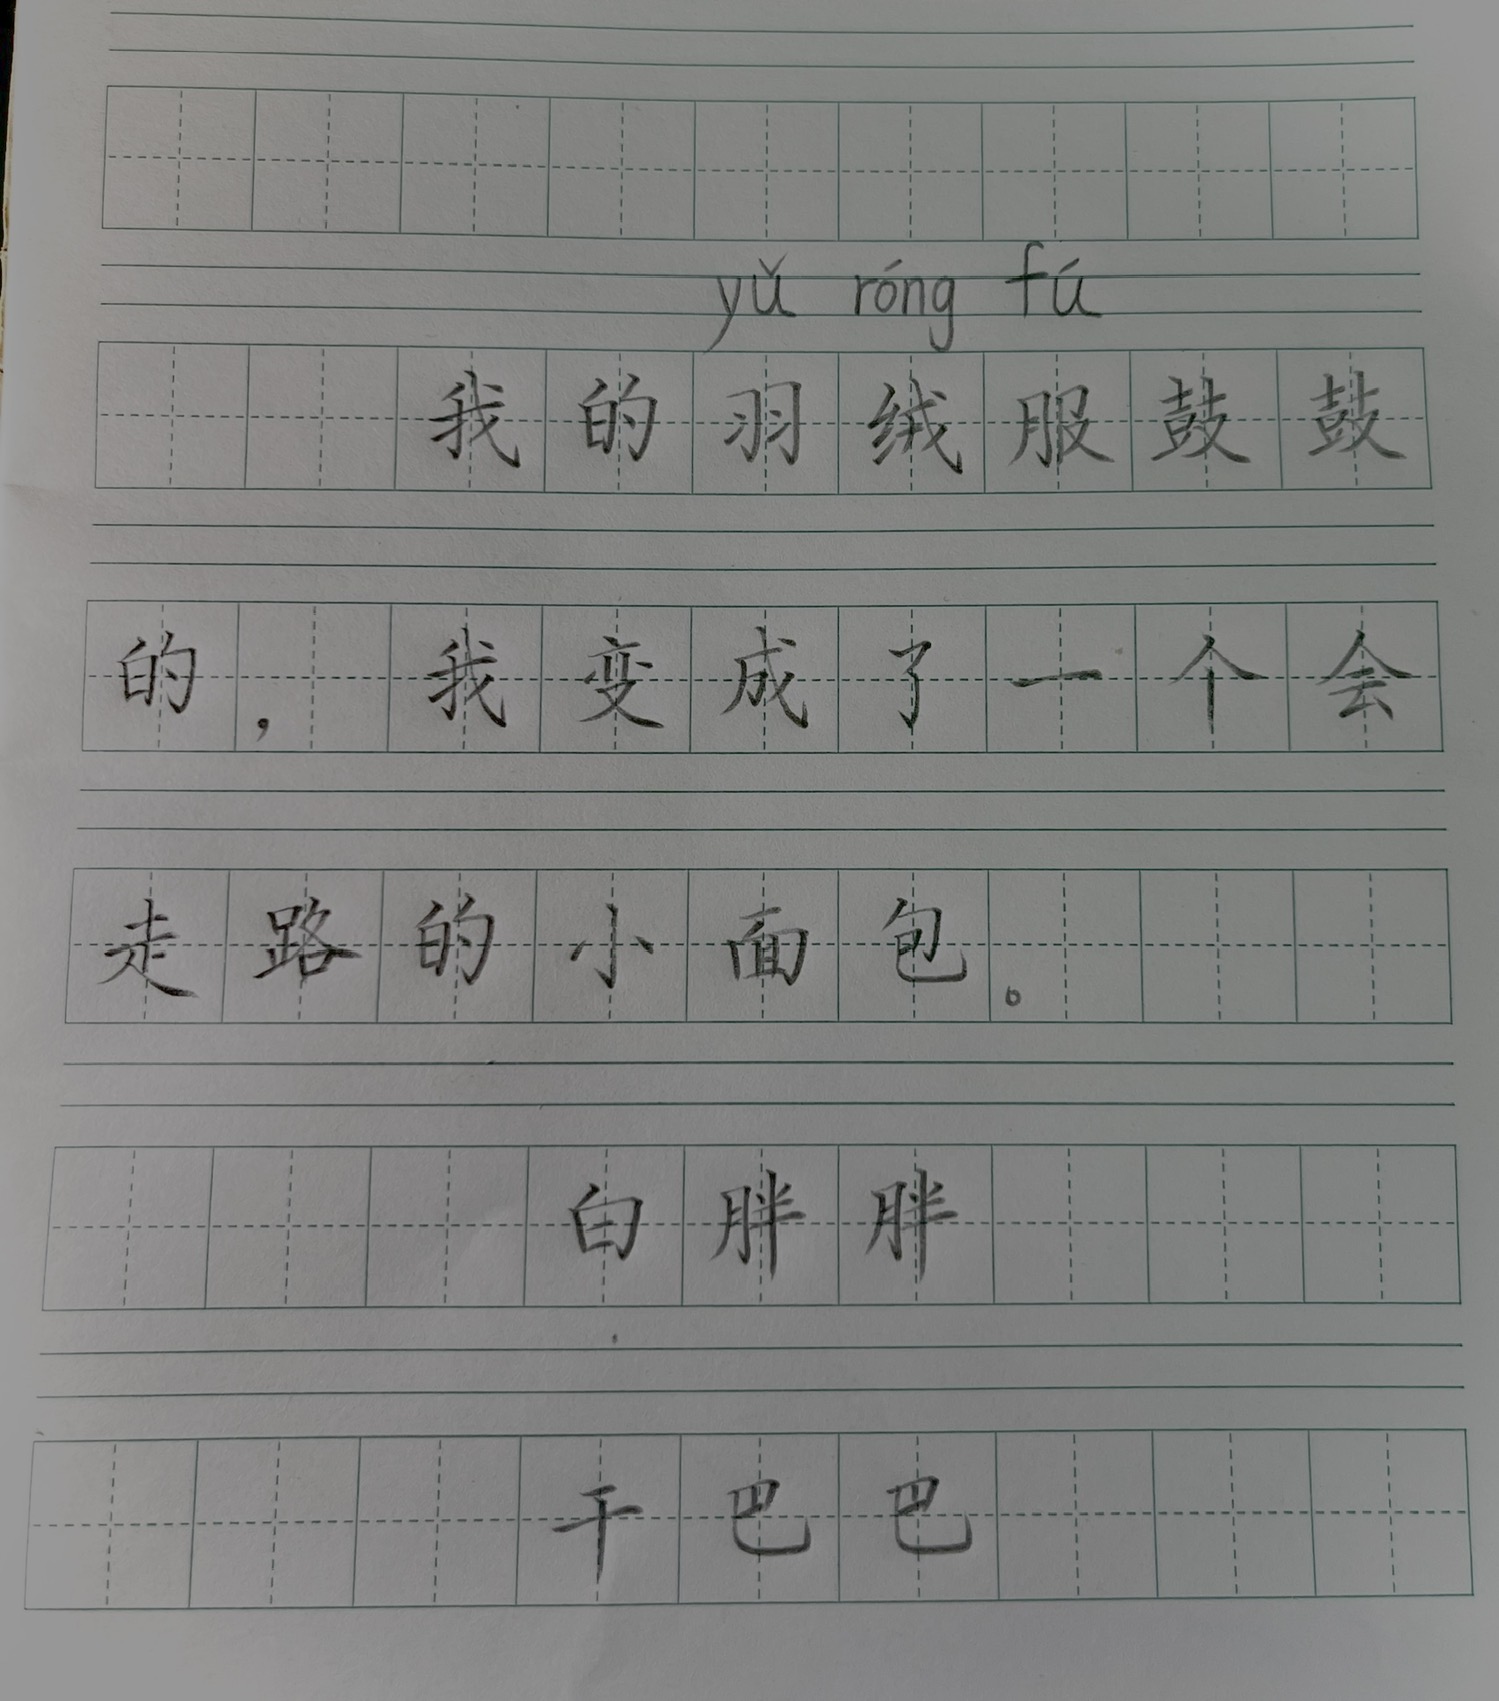 yǔ róng fú
我的羽绒服鼓鼓
的，我变成了一个会
走路的小面包。
白胖胖
干巴巴